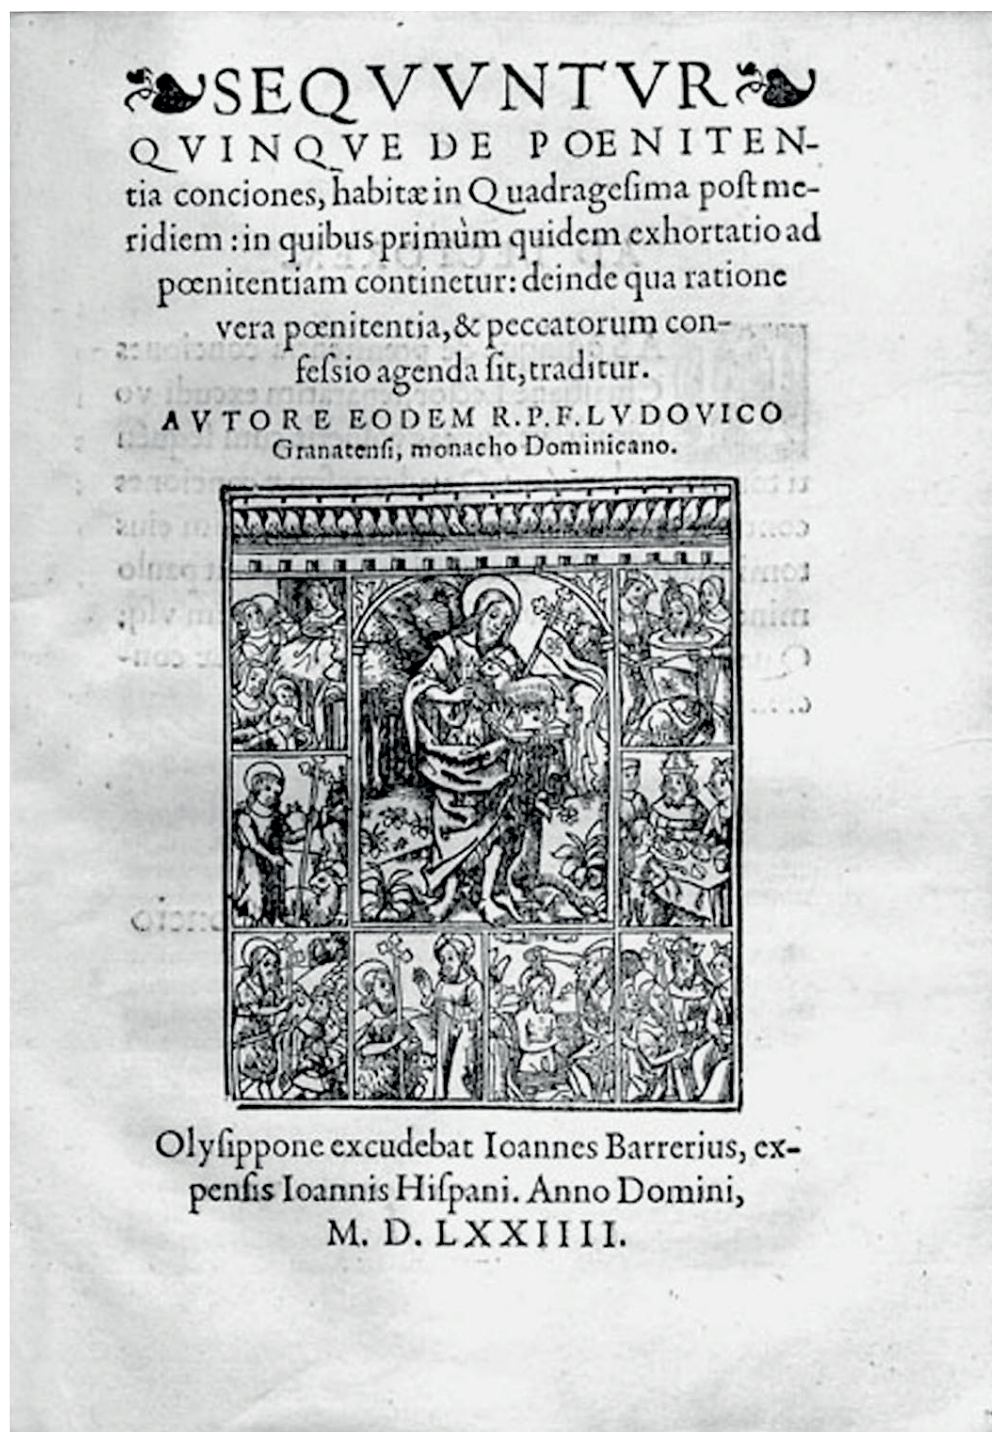 SEQVVNTVR
QVINQVE DE POENITEN-
tia conciones, habitæ in Quadrageſima poſt me-
ridiem : in quibus primùm quidem exhortatio ad
pœnitentiam continetur: deinde qua ratione
vera pœnitentia, & peccatorum con-
feſsio agenda ſit, traditur.
AVTORE EODEM R.P.F.LVDOVICO
Granatenſi, monacho Dominicano.
Olyſippone excudebat Ioannes Barrerius, ex-
penſis Ioannis Hiſpani. Anno Domini,
M. D. LXXIIII.